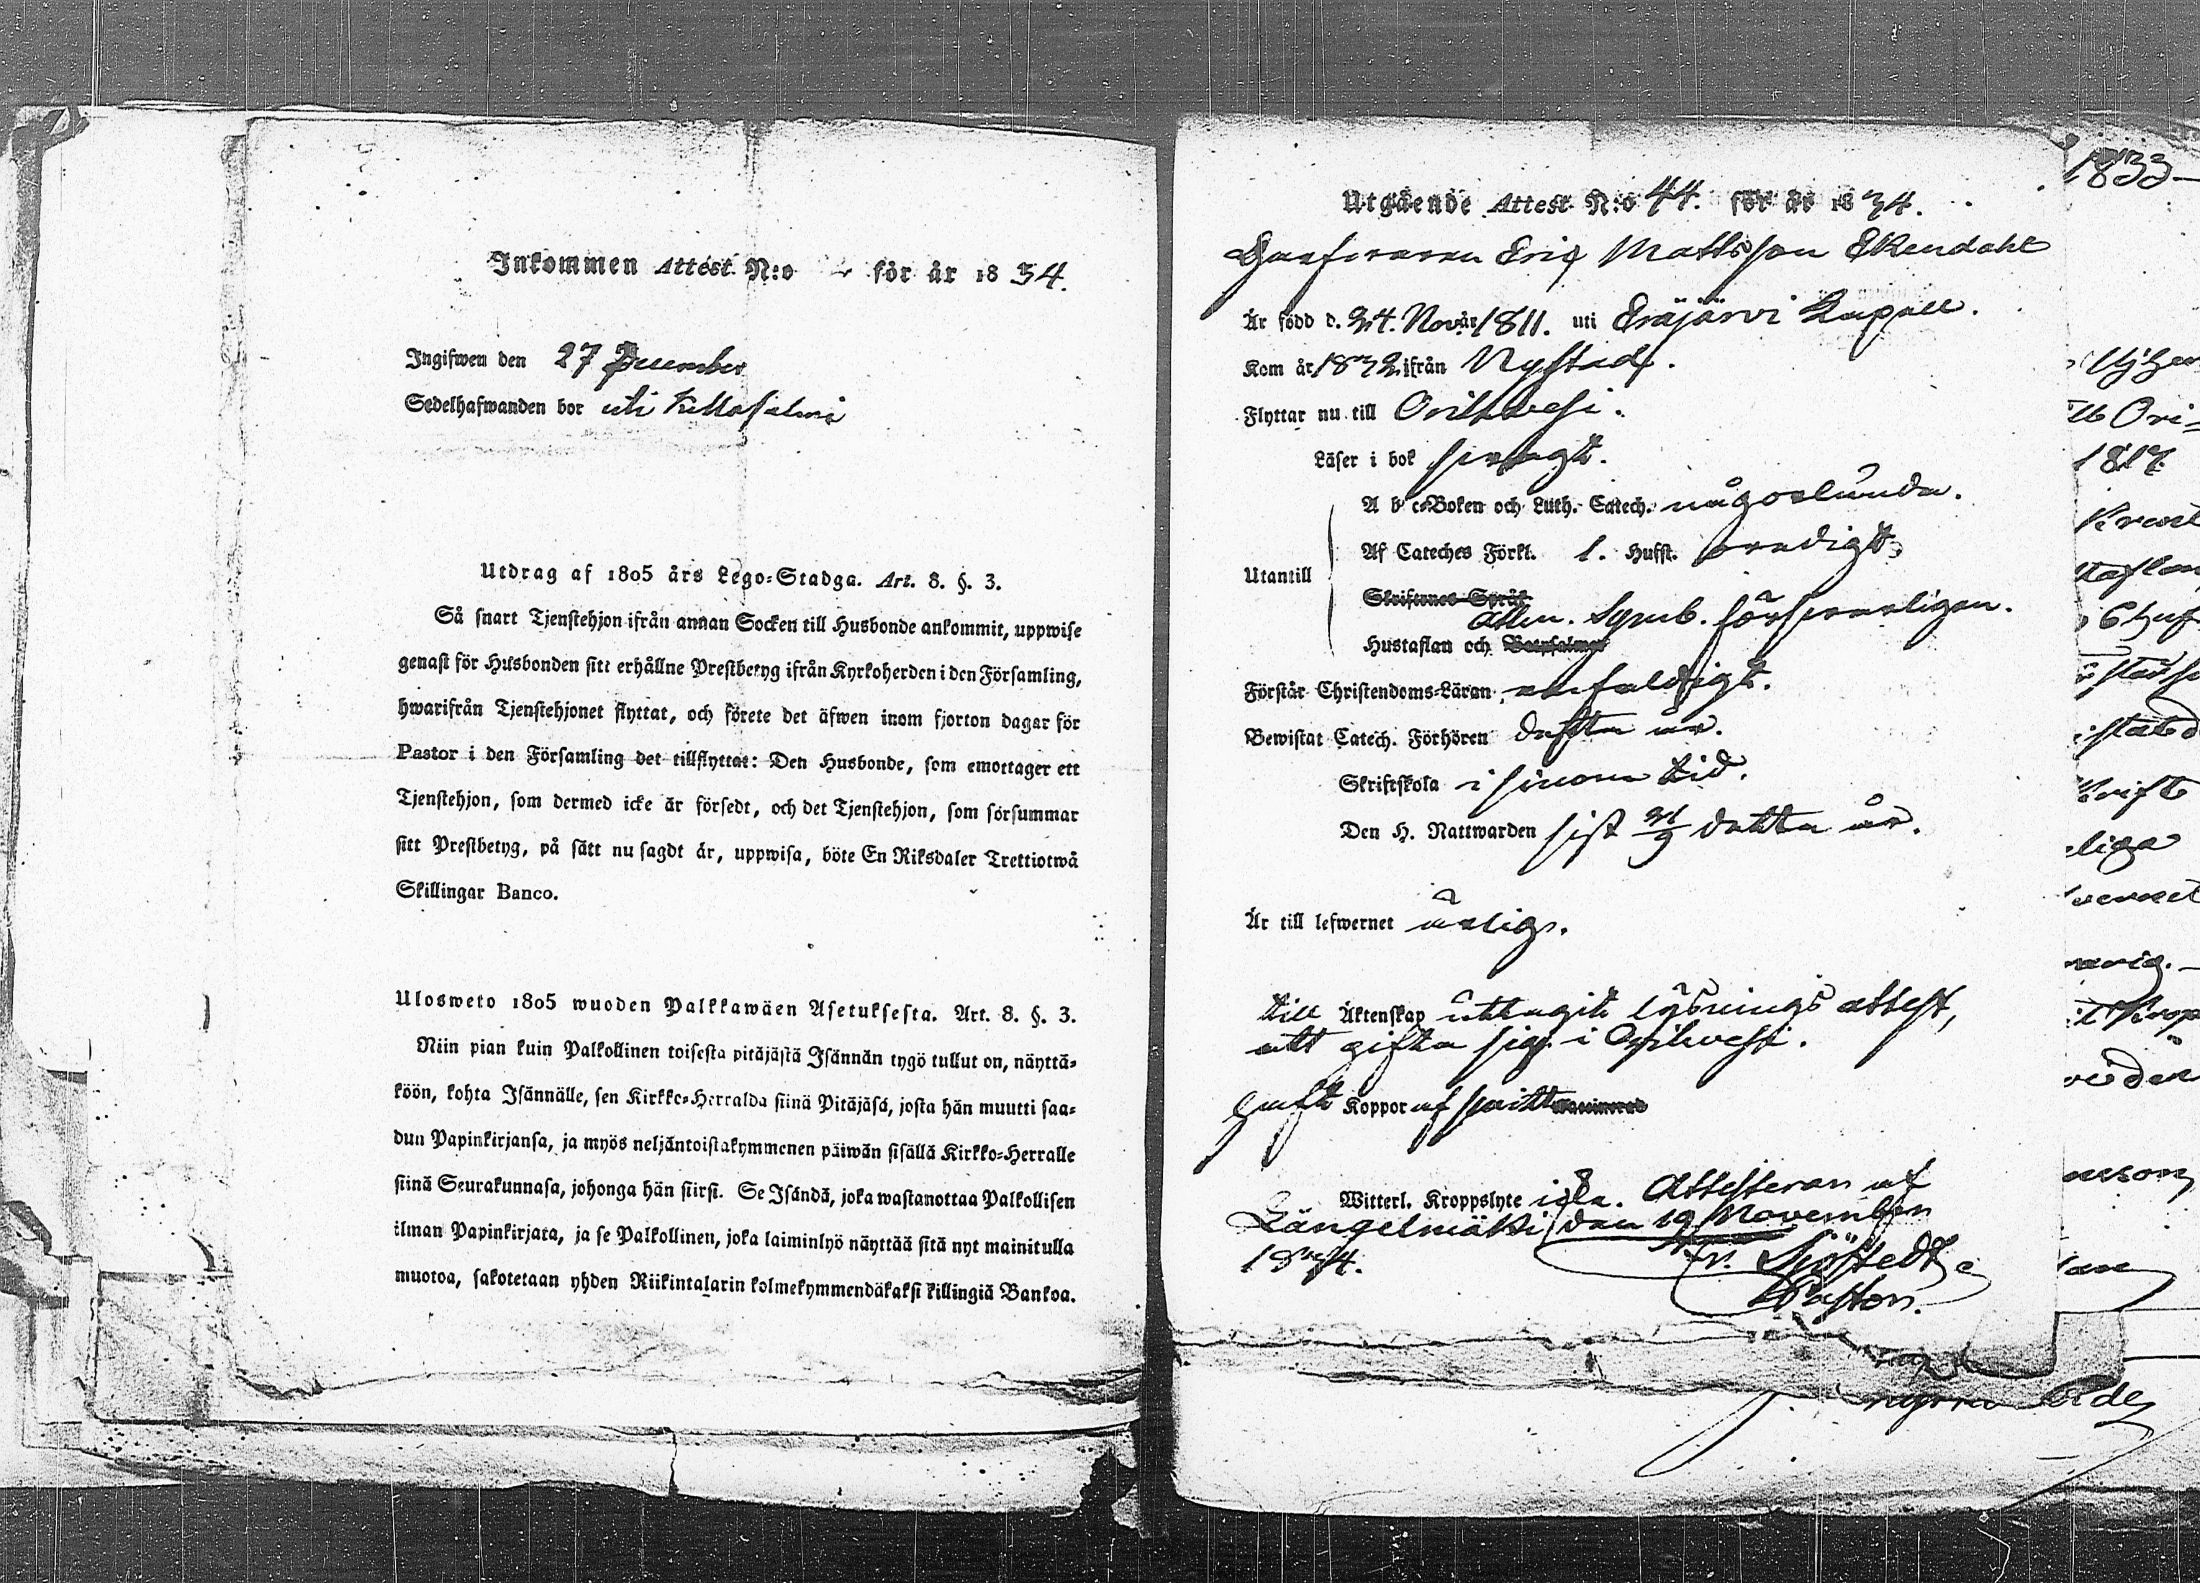 Inkommen Attest N:o för år 1834.
Ingifwen den 27 December
Sedelhafwanden bor uti
Utdrag af 1805 års Lego-Stadga. Art. 8. §. 3.
Så snart Tjenstehjon ifrån annan Socken till Husbonde ankommit, uppwise
genast för Husbonden sitt erhållne Prestbetyg ifrån Kyrkoherden i den Församling,
hwarifrån Tjenstehjonet flyttat, och förete det äfwen inom fjorton dagar för
Pastor i den Församling det tillflyttat: Den Husbonde, som emottager ett
Tjenstehjon, som dermed icke är försedt, och det Tjenstehjon, som försummar
sitt Prestbetyg, på sätt nu sagdt är, uppwisa, böte En Riksdaler Trettiotwå
Skillingar Banco.
Ulosweto 1805 wuoden Palkkawäen Asetuksesta. Art. 8. §. 3.
Niin pian kuin Palkollinen toisesta pitäjästä Isännän tygö tullut on, näyttä-
köön, kohta Isännälle, sen Kirkko-Herralda siinä Pitäjäsä, josta hän muutti saa-
dun Papinkirjansa, ja myös neljäntoistakymmenen päiwän sisällä Kirkko-Herralle
siinä Seurakunnasa, johonga hän siirsi. Se Isändä, joka wastanottaa Palkollisen
ilman Papinkirjata, ja se Palkollinen, joka laiminlyö näyttää sitä nyt mainitulla
muotoa, sakotetaan yhden Riikintalarin kolmekymmendäkaksi killingiä Bankoa.
Utgående Attest N:o 44. för år 1834.
Garfwaren Eric Mattsson Ekendahl
Är född d. 24. Nov. år 1811. uti Eräjärvi Kapell.
Kom år 1832 ifrån Nystad.
Flyttar nu till Orihvesi.
Läser i bok swagt.
A b c-Boken och Luth. Catech. någorlunda.
Af Cateches Förkl. 1. Hufst. oredigt.
Utantill
Skriftenes Språk
Athn. Symb. försvarligen.
Hustaflan och
Förstår Christendoms-Läran enfaldigt.
Bewistat Catech. Förhören detta år.
Skriftskola i sinom tid.
Den H. Nattwarden sist 21/9 detta år.
Är till lefwernet ärlig.
till Äktenskap uttagit lysnings attest,
att gifta sig i Orihvesi.
haft Koppor af
Witterl. Kroppslyte icke. Attesteran af
Längelmäki den 19 November
1834.
Sjöstedt
Pastor.
1833
Ori-
1817.